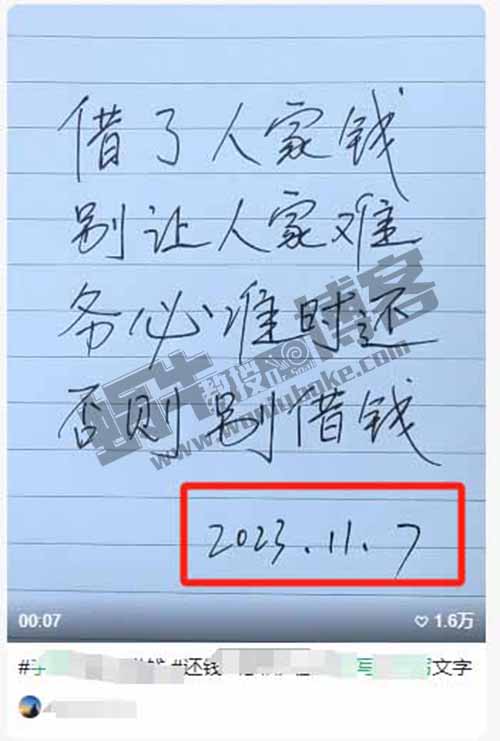 借了人家钱
别让人家难
务必准时还
否则别借钱
2023.11.7
蜗牛博客
www.wniuboke.com
00:07
1.6万
#手 #还钱 写 文字